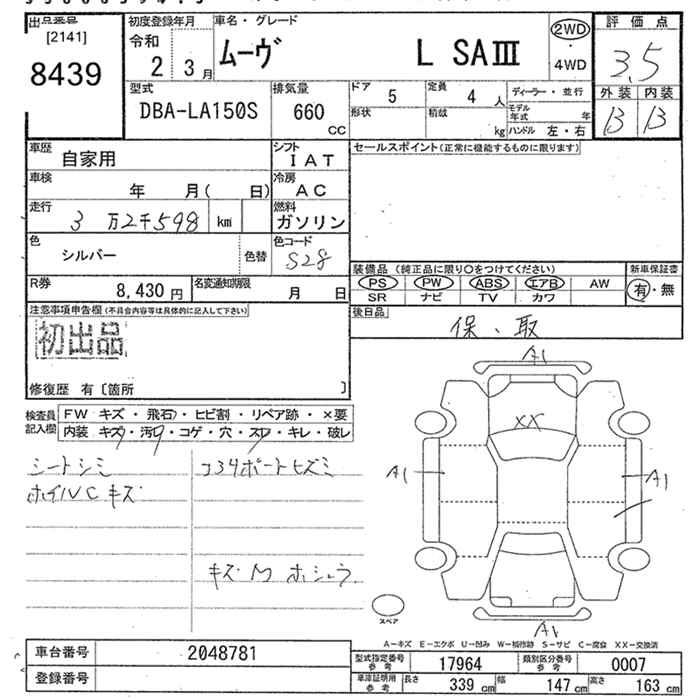 出品番号
[2141]
8439
初度登録年月
令和
2 3月
車名・グレード
ムーヴ L SAⅢ
2WD
・
4WD
評価点
3.5
外装 内装
B B
型式
DBA-LA150S
排気量
660
CC
ドア
5
定員
4 人
形状
積載
kg
ディーラー・並行
モデル年式 年
ハンドル 左・右
車歴
自家用
シフト
IAT
車検
年 月( 日)
冷房
AC
走行
3万2千598 km
燃料
ガソリン
色
シルバー
色替
色コード
S28
R券
8,430 円
名変通知期限
月 日
セールスポイント(正常に機能するものに限ります)
装備品 (純正品に限り○をつけてください)
新車保証書
PS PW ABS エアB AW
有・無
SR ナビ TV カワ
後日品
保、取
注意事項申告欄(不具合内容等は具体的に記入して下さい)
初出品
修復歴 有〔箇所 〕
検査員記入欄
FW キズ・飛石・ヒビ割・リペア跡・×要
内装 キズ・汚・コゲ・穴・スレ・キレ・破レ
シートシミ
ホイルCキズ
コ34ポートヒズミ
キズ M ホシュウ
A1
XX
A1
A1
A1
スペア
A−キズ E−エクボ U−凹み W−補修跡 S−サビ C−腐食 XX−交換済
車台番号 2048781
登録番号
型式指定番号参考 17964
類別区分番号参考 0007
車庫証明用参考 長さ 339 cm 幅 147 cm 高さ 163 cm